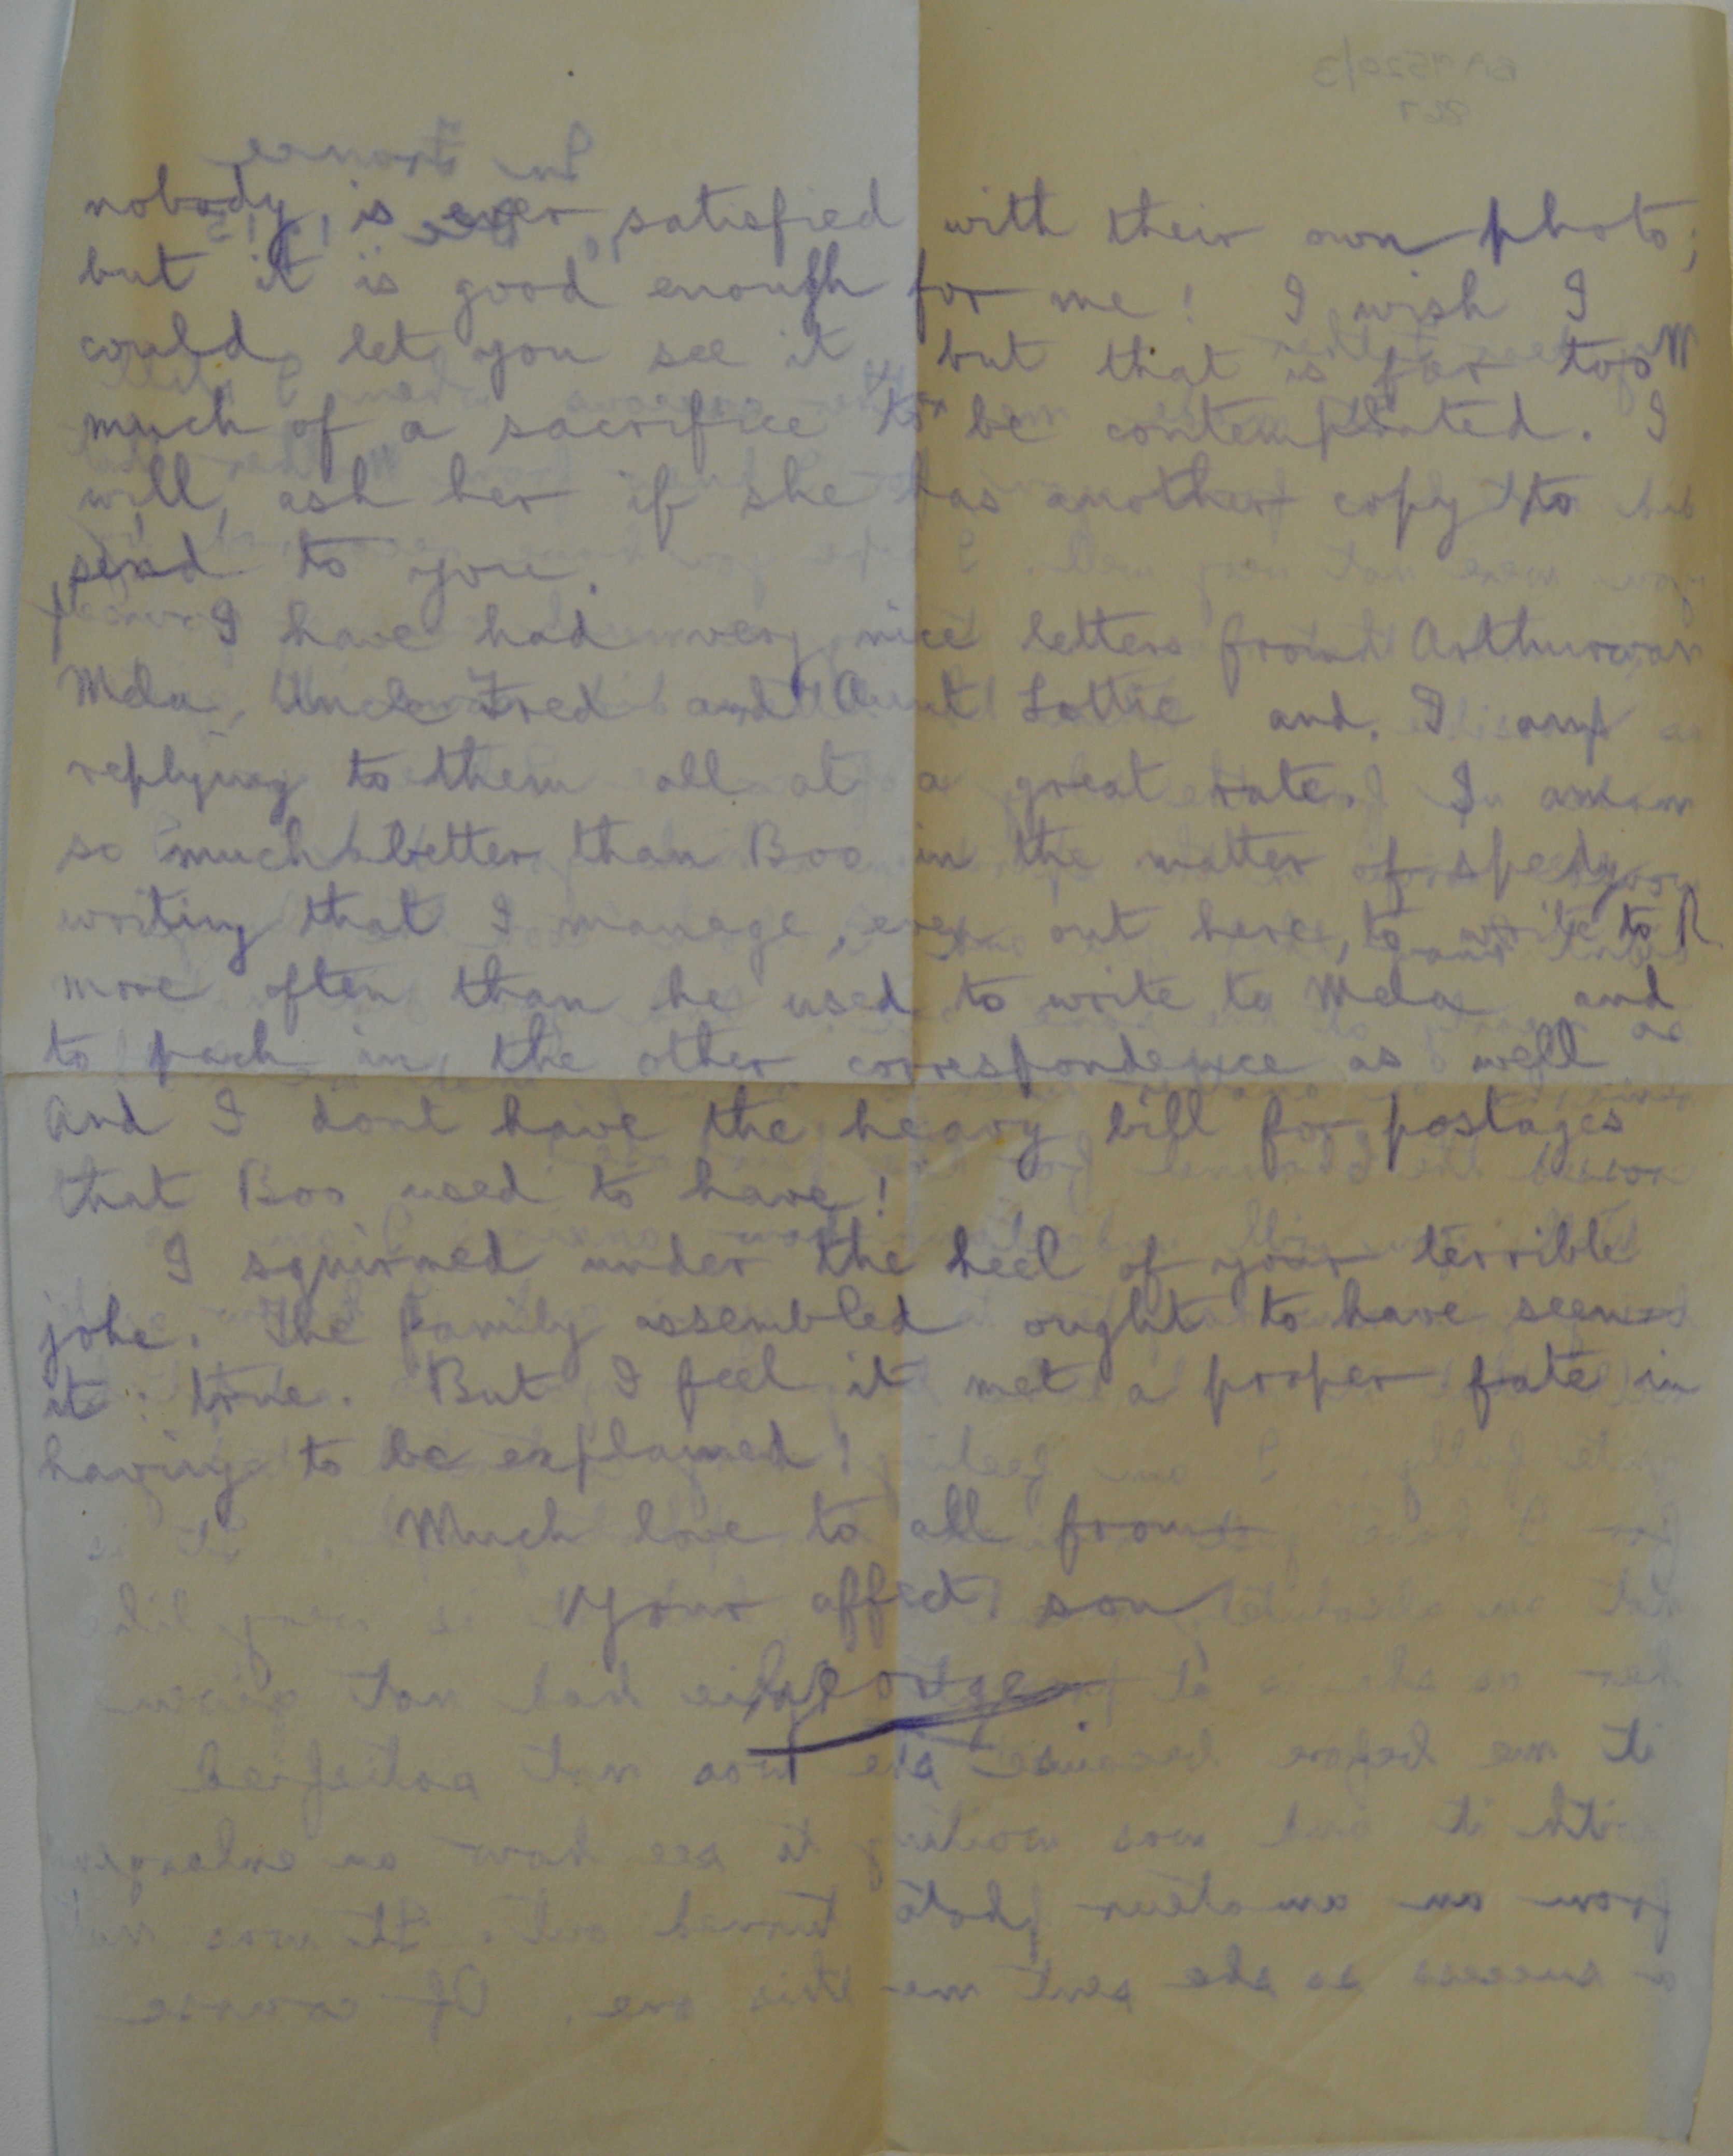 nobody is ever satisfied with their own photo;
but it is good enough for me! I wish I
could let you see it but that is far too
much of a sacrifice to be contemplated. I
will ask her if she has another copy to
send to you.
I have had very nice letters from Arthur
Mela, Uncle Fred and Aunt Lottie and I am
replying to them all at a great rate. I am
so much better than Boo in the matter of
writing that I manage, even out here, to write to R
more often than he used to write to Mela and
to pack in the other correspondence as well
And I dont have the heavy bill for postages
that Boo used to have!
I squirmed under the heel of your terrible
joke. The family assembled ought to have seen
it: true. But I feel it met a proper fate in
having to be explained!
Much love to all from
Your affect son
George